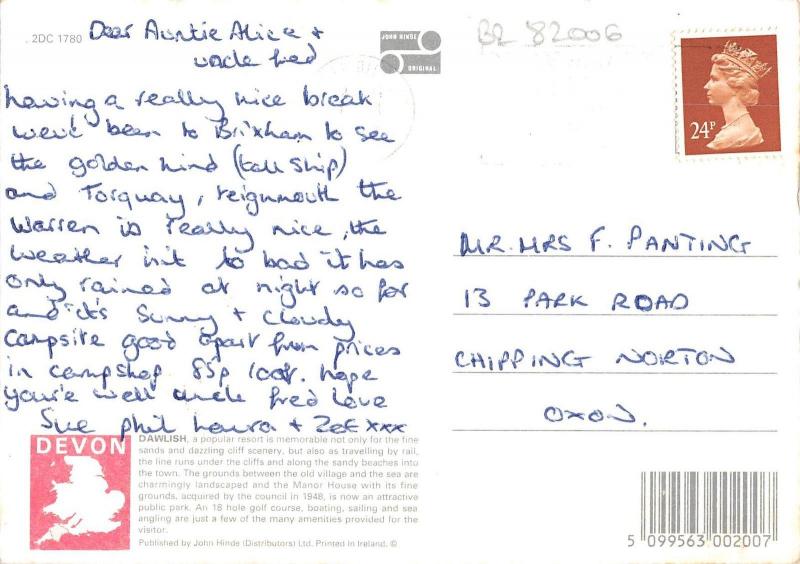 2DC 1780
Dear Auntie Alice +
uncle fred
having a really nice break
we've been to Brixham to see
the golden hind (tall ship)
and Torquay, teignmouth the
warren is really nice, the
weather isit to bad it has
only rained at night so far
and it's sunny + cloudy
campsite good apart from prices
in campshop 85p loaf. hope
your'e well uncle fred love
Sue phil Laura + Zoë xxx
JOHN HINDE
ORIGINAL
BL 82006
24P
MR. MRS F. PANTING
13 PARK ROAD
CHIPPING NORTON
OXON.
DEVON
DAWLISH, a popular resort is memorable not only for the fine
sands and dazzling cliff scenery, but also as travelling by rail,
the line runs under the cliffs and along the sandy beaches into
the town. The grounds between the old village and the sea are
charmingly landscaped and the Manor House with its fine
grounds, acquired by the council in 1948, is now an attractive
public park. An 18 hole golf course, boating, sailing and sea
angling are just a few of the many amenities provided for the
visitor.
Published by John Hinde (Distributors) Ltd. Printed in Ireland. ©
5 099563 002007